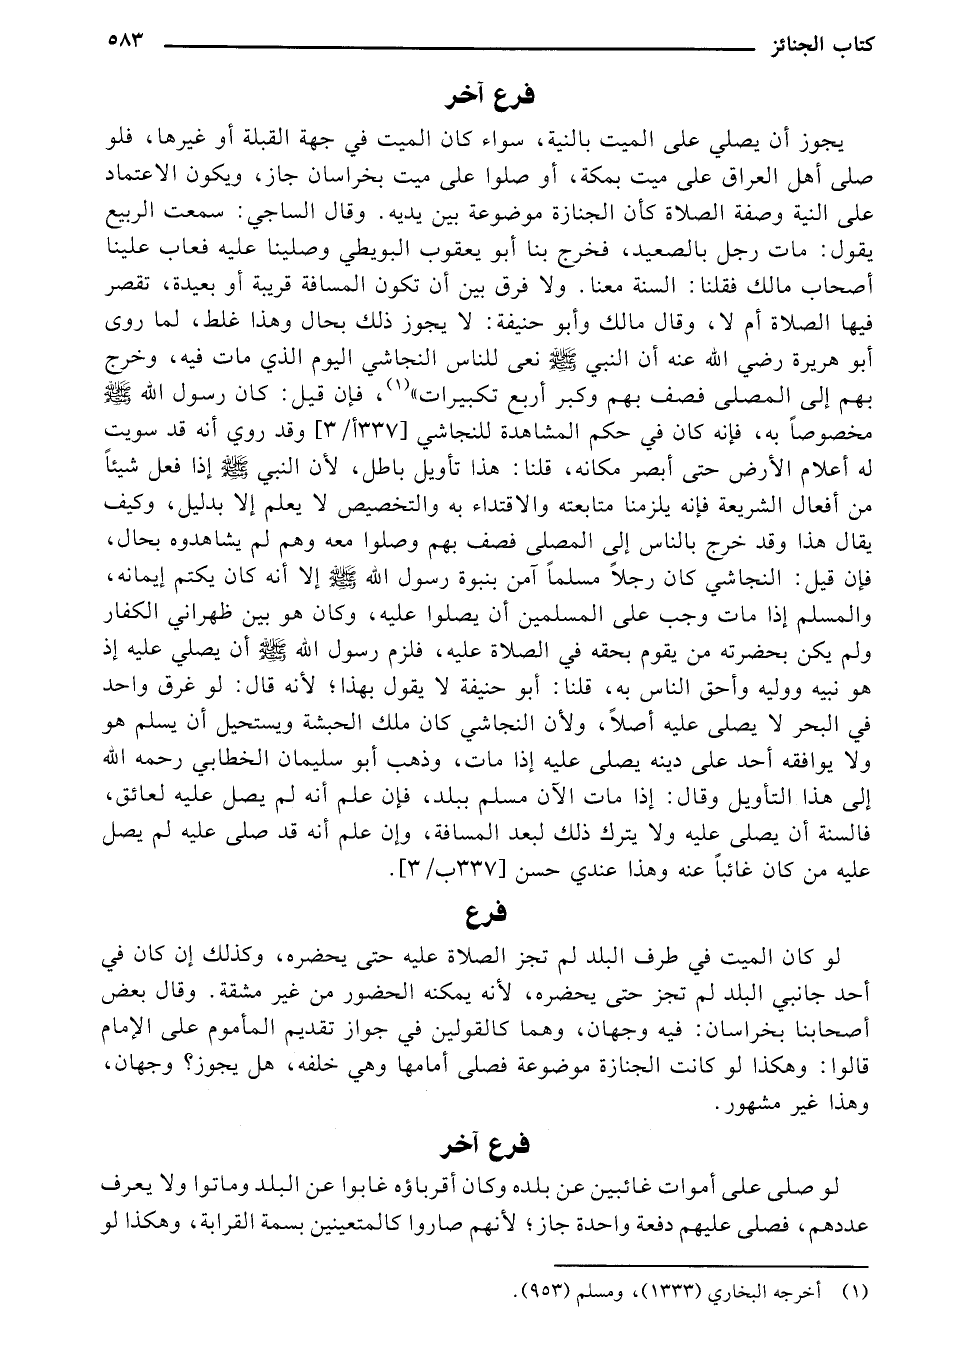 كتاب الجنائز ٥٨٣
فرع آخر
يجوز أن يصلي على الميت بالنية، سواء كان الميت في جهة القبلة أو غيرها، فلو
صلى أهل العراق على ميت بمكة، أو صلوا على ميت بخراسان جاز، ويكون الاعتماد
على النية وصفة الصلاة كأن الجنازة موضوعة بين يديه. وقال الساجي: سمعت الربيع
يقول: مات رجل بالصعيد، فخرج بنا أبو يعقوب البويطي وصلينا عليه فعاب علينا
أصحاب مالك فقلنا: السنة معنا. ولا فرق بين أن تكون المسافة قريبة أو بعيدة، تقصر
فيها الصلاة أم لا، وقال مالك وأبو حنيفة: لا يجوز ذلك بحال وهذا غلط، لما روى
أبو هريرة رضي الله عنه أن النبي ﷺ نعى للناس النجاشي اليوم الذي مات فيه، وخرج
بهم إلى المصلى فصف بهم وكبر أربع تكبيرات»(١)، فإن قيل: كان رسول الله ﷺ
مخصوصاً به، فإنه كان في حكم المشاهدة للنجاشي [٣٣٧أ/ ٣] وقد روي أنه قد سويت
له أعلام الأرض حتى أبصر مكانه، قلنا: هذا تأويل باطل، لأن النبي ﷺ إذا فعل شيئاً
من أفعال الشريعة فإنه يلزمنا متابعته والاقتداء به والتخصيص لا يعلم إلا بدليل، وكيف
يقال هذا وقد خرج بالناس إلى المصلى فصف بهم وصلوا معه وهم لم يشاهدوه بحال،
فإن قيل: النجاشي كان رجلاً مسلماً آمن بنبوة رسول الله ﷺ إلا أنه كان يكتم إيمانه،
والمسلم إذا مات وجب على المسلمين أن يصلوا عليه، وكان هو بين ظهراني الكفار
ولم يكن بحضرته من يقوم بحقه في الصلاة عليه، فلزم رسول الله ﷺ أن يصلي عليه إذ
هو نبيه ووليه وأحق الناس به، قلنا: أبو حنيفة لا يقول بهذا؛ لأنه قال: لو غرق واحد
في البحر لا يصلى عليه أصلاً، ولأن النجاشي كان ملك الحبشة ويستحيل أن يسلم هو
ولا يوافقه أحد على دينه يصلى عليه إذا مات، وذهب أبو سليمان الخطابي رحمه الله
إلى هذا التأويل وقال: إذا مات الآن مسلم ببلد، فإن علم أنه لم يصل عليه لعائق،
فالسنة أن يصلى عليه ولا يترك ذلك لبعد المسافة، وإن علم أنه قد صلى عليه لم يصل
عليه من كان غائباً عنه وهذا عندي حسن [٣٣٧ب/ ٣].
فرع
لو كان الميت في طرف البلد لم تجز الصلاة عليه حتى يحضره، وكذلك إن كان في
أحد جانبي البلد لم تجز حتى يحضره، لأنه يمكنه الحضور من غير مشقة. وقال بعض
أصحابنا بخراسان: فيه وجهان، وهما كالقولين في جواز تقديم المأموم على الإمام
قالوا: وهكذا لو كانت الجنازة موضوعة فصلى أمامها وهي خلفه، هل يجوز؟ وجهان،
وهذا غير مشهور.
فرع آخر
لو صلى على أموات غائبين عن بلده وكان أقرباؤه غابوا عن البلد وماتوا ولا يعرف
عددهم، فصلى عليهم دفعة واحدة جاز؛ لأنهم صاروا كالمتعينين بسمة القرابة، وهكذا لو
(١) أخرجه البخاري (١٣٣٣)، ومسلم (٩٥٣).